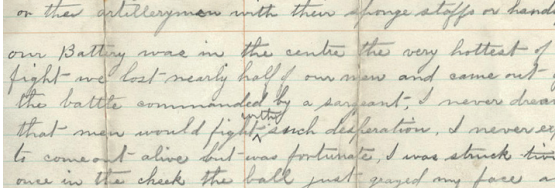 or the artillerymen with their sponge staffs or hand
our Battery was in the centre the very hottest of
fight we lost nearly half of our men and came out
the battle commanded by a sargeant, I never drea
that men would fight with such desperation, I never ex
to come out alive but was fortunate, I was struck
once in the cheek the ball just grazed my face a